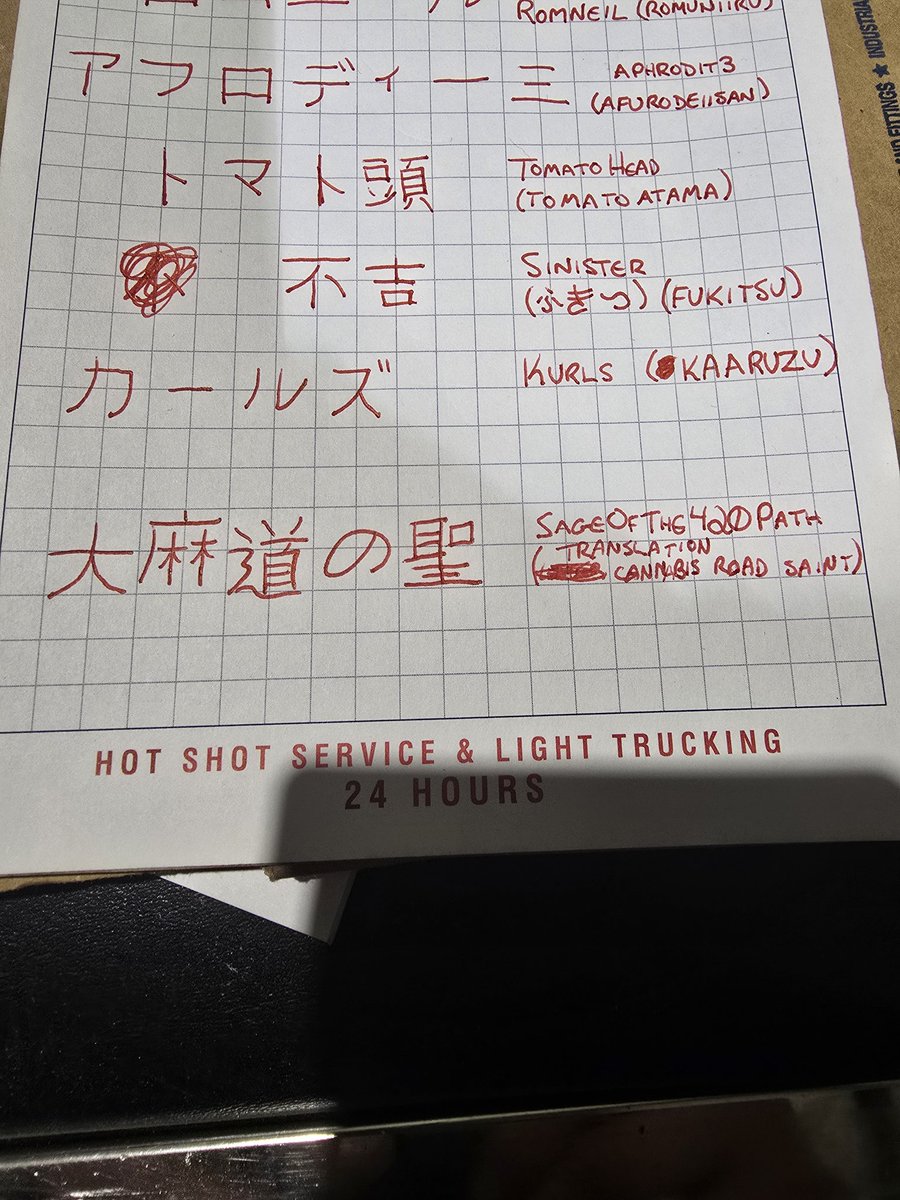 ROMNEIL (ROMUNIIRU)
アフロディー三 APHRODIT3
(AFURODEIISAN)
トマト頭 TOMATO HEAD
(TOMATO ATAMA)
不吉 SINISTER
(ふきつ) (FUKITSU)
カールズ KURLS (KAARUZU)
大麻道の聖 SAGE OF THE 420 PATH
(TRANSLATION
CANNABIS ROAD SAINT)
HOT SHOT SERVICE & LIGHT TRUCKING
24 HOURS
AND FITTINGS ★ INDUSTRIA